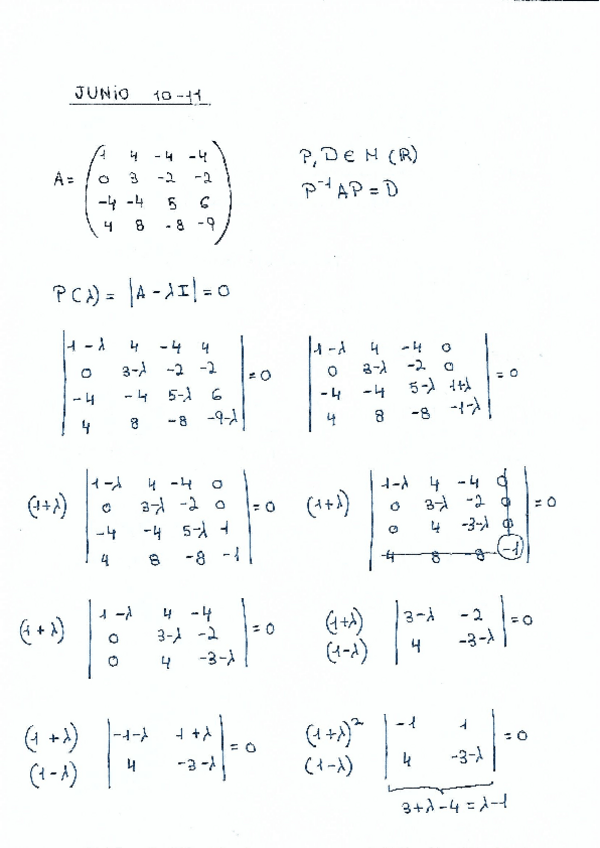 JUNIO 10-11
A = ( 1 4 -4 -4
0 3 -2 -2
-4 -4 5 6
4 8 -8 -9 )
P, D ∈ M (ℝ)
P⁻¹ A P = D
P(λ) = |A - λI| = 0
| 1-λ 4 -4 4
0 3-λ -2 -2
-4 -4 5-λ 6
4 8 -8 -9-λ | = 0
| 1-λ 4 -4 0
0 3-λ -2 0
-4 -4 5-λ 1+λ
4 8 -8 -1-λ | = 0
(1+λ) | 1-λ 4 -4 0
0 3-λ -2 0
-4 -4 5-λ 1
4 8 -8 -1 | = 0
(1+λ) | 1-λ 4 -4 0
0 3-λ -2 0
0 4 -3-λ 0
4 8 -8 -1 | = 0
(1+λ) | 1-λ 4 -4
0 3-λ -2
0 4 -3-λ | = 0
(1+λ) (1-λ) | 3-λ -2
4 -3-λ | = 0
(1+λ) (1-λ) | -1-λ 1+λ
4 -3-λ | = 0
(1+λ)² (1-λ) | -1 1
4 -3-λ | = 0
3+λ-4 = λ-1